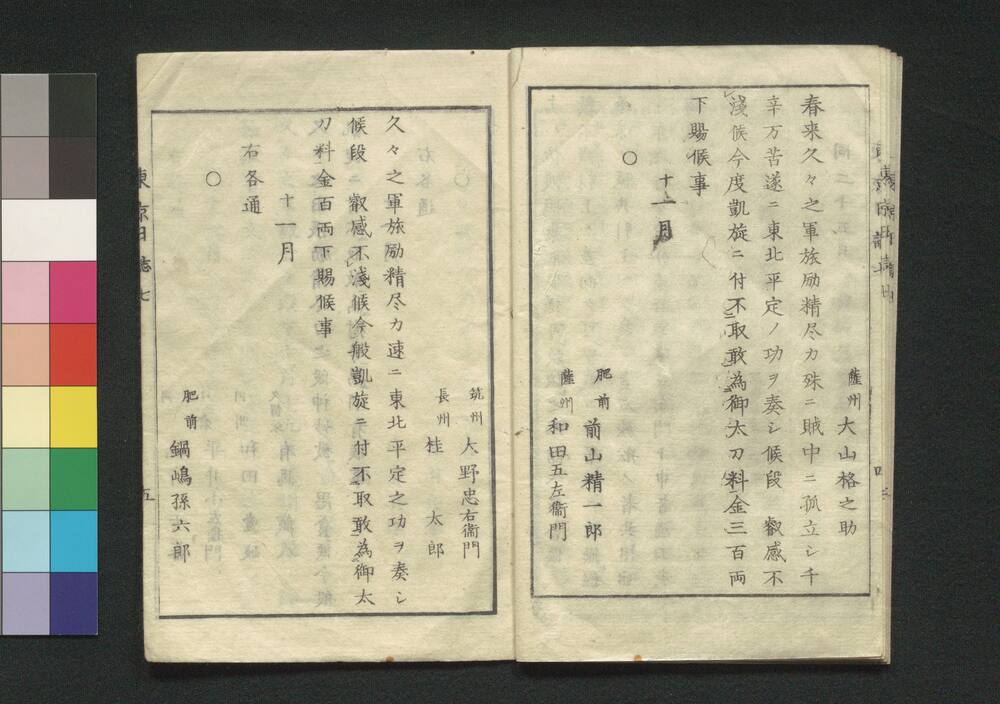 薩州 大山格之助
春来久々之軍旅励精尽力殊ニ賊中ニ孤立シ千
辛万苦遂ニ東北平定ノ功ヲ奏シ候段 叡感不
淺候今度凱旋ニ付不取敢為御太刀料金三百両
下賜候事
十一月
○
肥前 前山精一郎
薩州 和田五左衞門
筑州 大野忠右衞門
長州 桂太郎
久々之軍旅励精尽力速ニ東北平定之功ヲ奏シ
候段 叡感不淺候今般凱旋ニ付不取敢為御太
刀料金百両下賜候事
十一月
右各通
○
肥前 鍋嶋孫六郎
東京日誌七
五